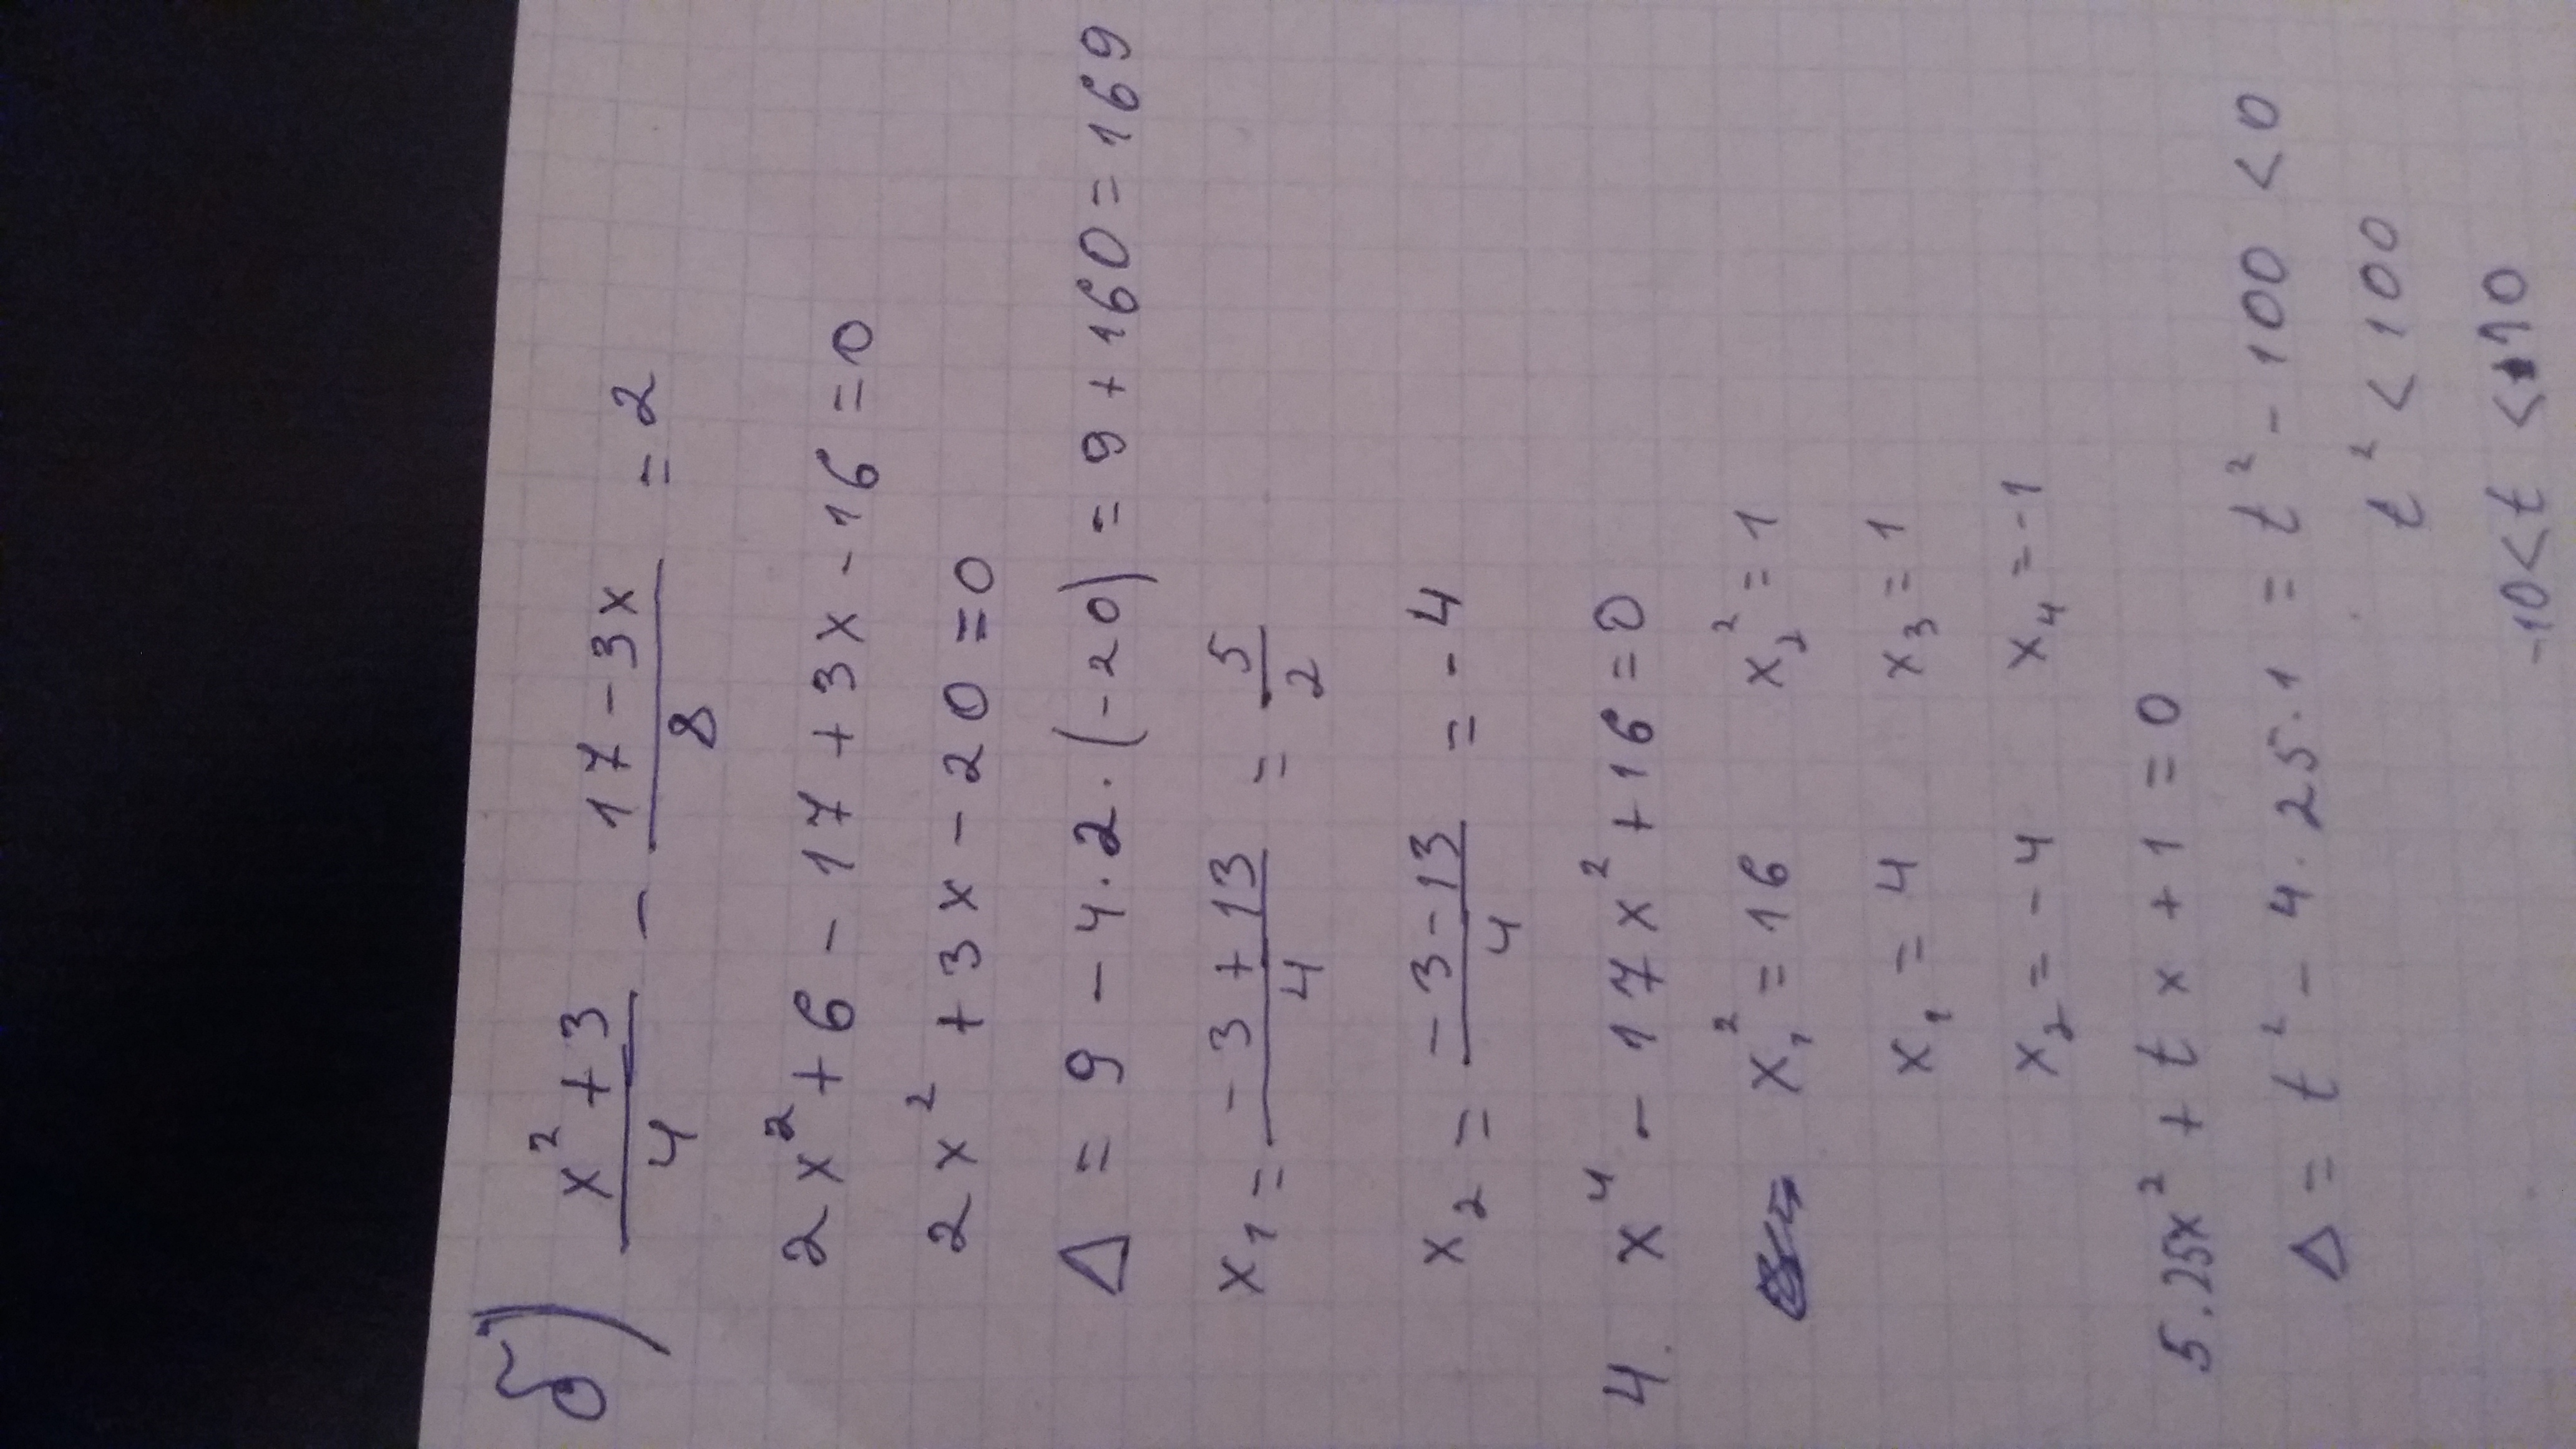 б) (x² + 3)/4 - (17 - 3x)/8 = 2
2x² + 6 - 17 + 3x - 16 = 0
2x² + 3x - 20 = 0
Δ = 9 - 4·2·(-20) = 9 + 160 = 169
x₁ = (-3 + 13)/4 = 5/2
x₂ = (-3 - 13)/4 = -4
4. x⁴ - 17x² + 16 = 0
x₁² = 16 x₂² = 1
x₁ = 4 x₃ = 1
x₂ = -4 x₄ = -1
5. 25x² + tx + 1 = 0
Δ = t² - 4·25·1 = t² - 100 < 0
t² < 100
-10 < t < 10